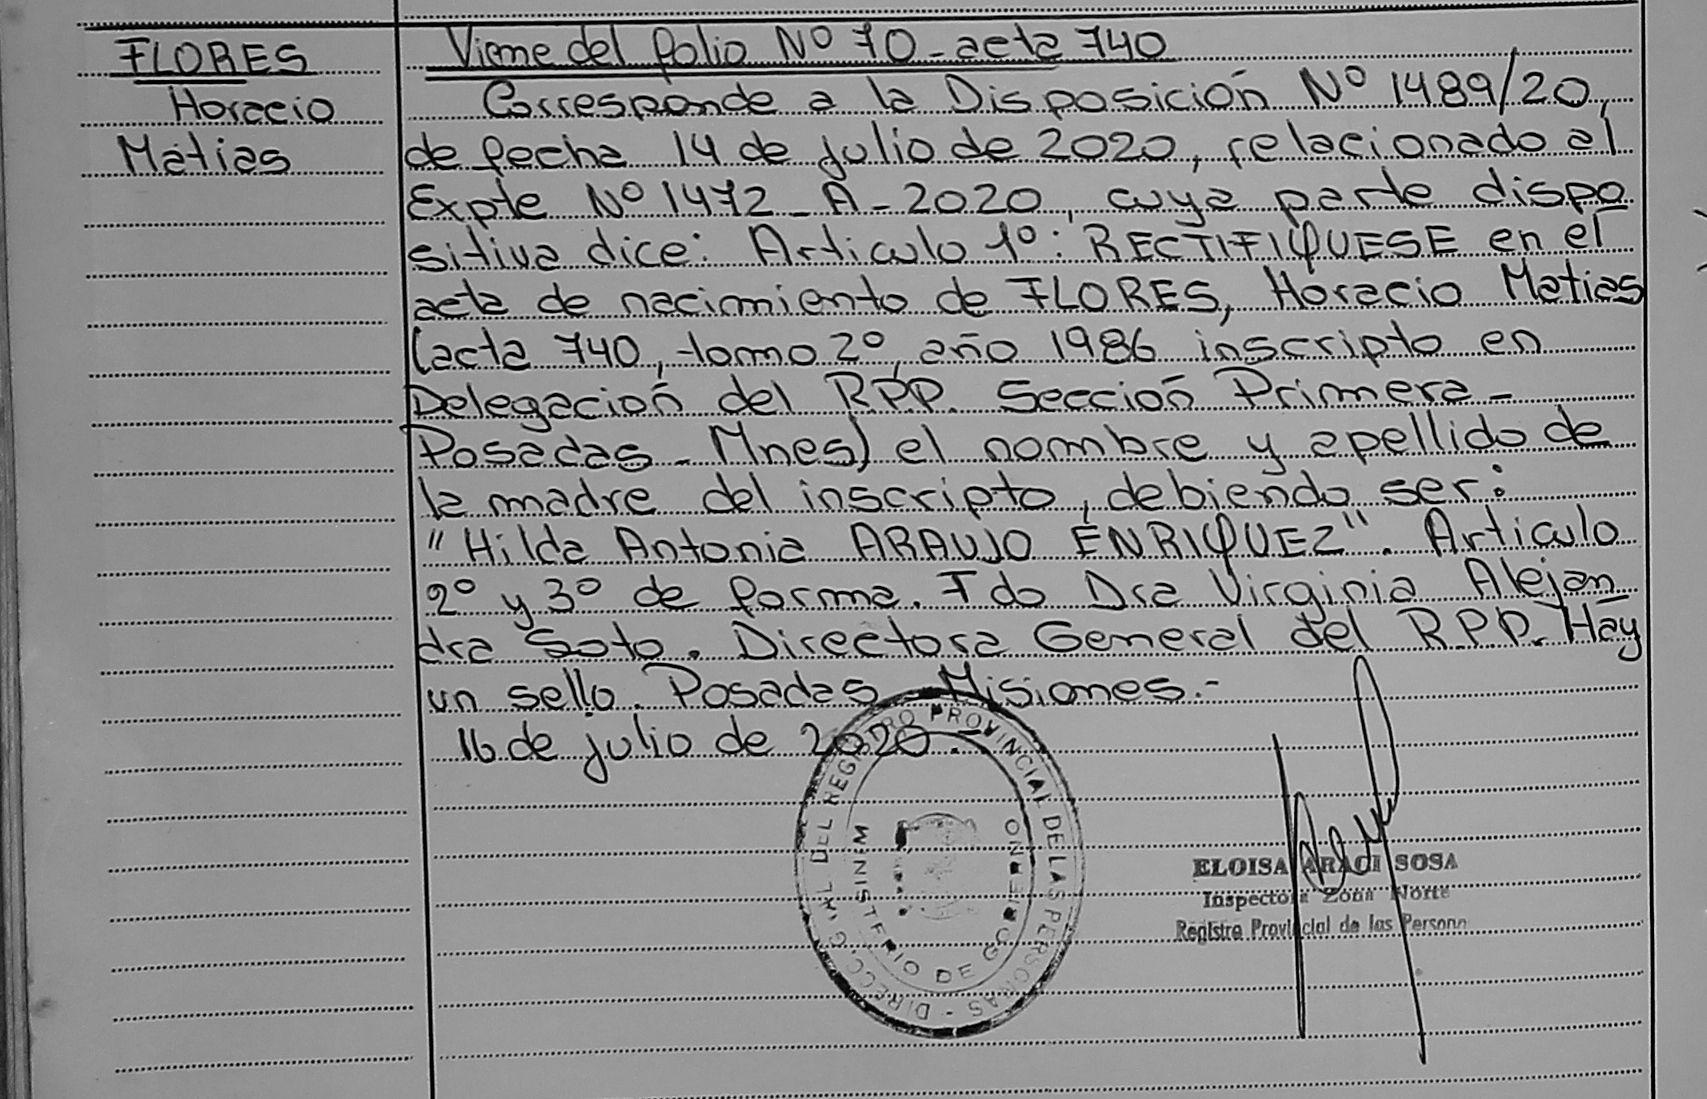 FLORES
Horacio
Matias
Viene del folio Nº 70 - acta 740
Corresponde a la Disposición Nº 1489/20,
de fecha 14 de julio de 2020, relacionado al
Expte Nº 1472 - A - 2020, cuya parte dispo
sitiva dice: Articulo 1º: RECTIFIQUESE en el
acta de nacimiento de FLORES, Horacio Matias
(acta 740, tomo 2º, año 1986 inscripto en
Delegación del R.P.P. Sección Primera -
Posadas - Mnes) el nombre y apellido de
la madre del inscripto, debiendo ser:
"Hilda Antonia ARAUJO ENRIQUEZ". Articulo
2º y 3º de forma. Fdo Dra Virginia Alejan
dra Soto. Directora General del R.P.P. Hay
un sello. Posadas Misiones.-
16 de julio de 2020.-
DIRECC. GRAL DEL REGISTRO PROVINCIAL DE LAS PERSONAS -
MINISTERIO DE GOBIERNO
ELOISA ARACI SOSA
Inspectora Zona Norte
Registro Provincial de las Personas